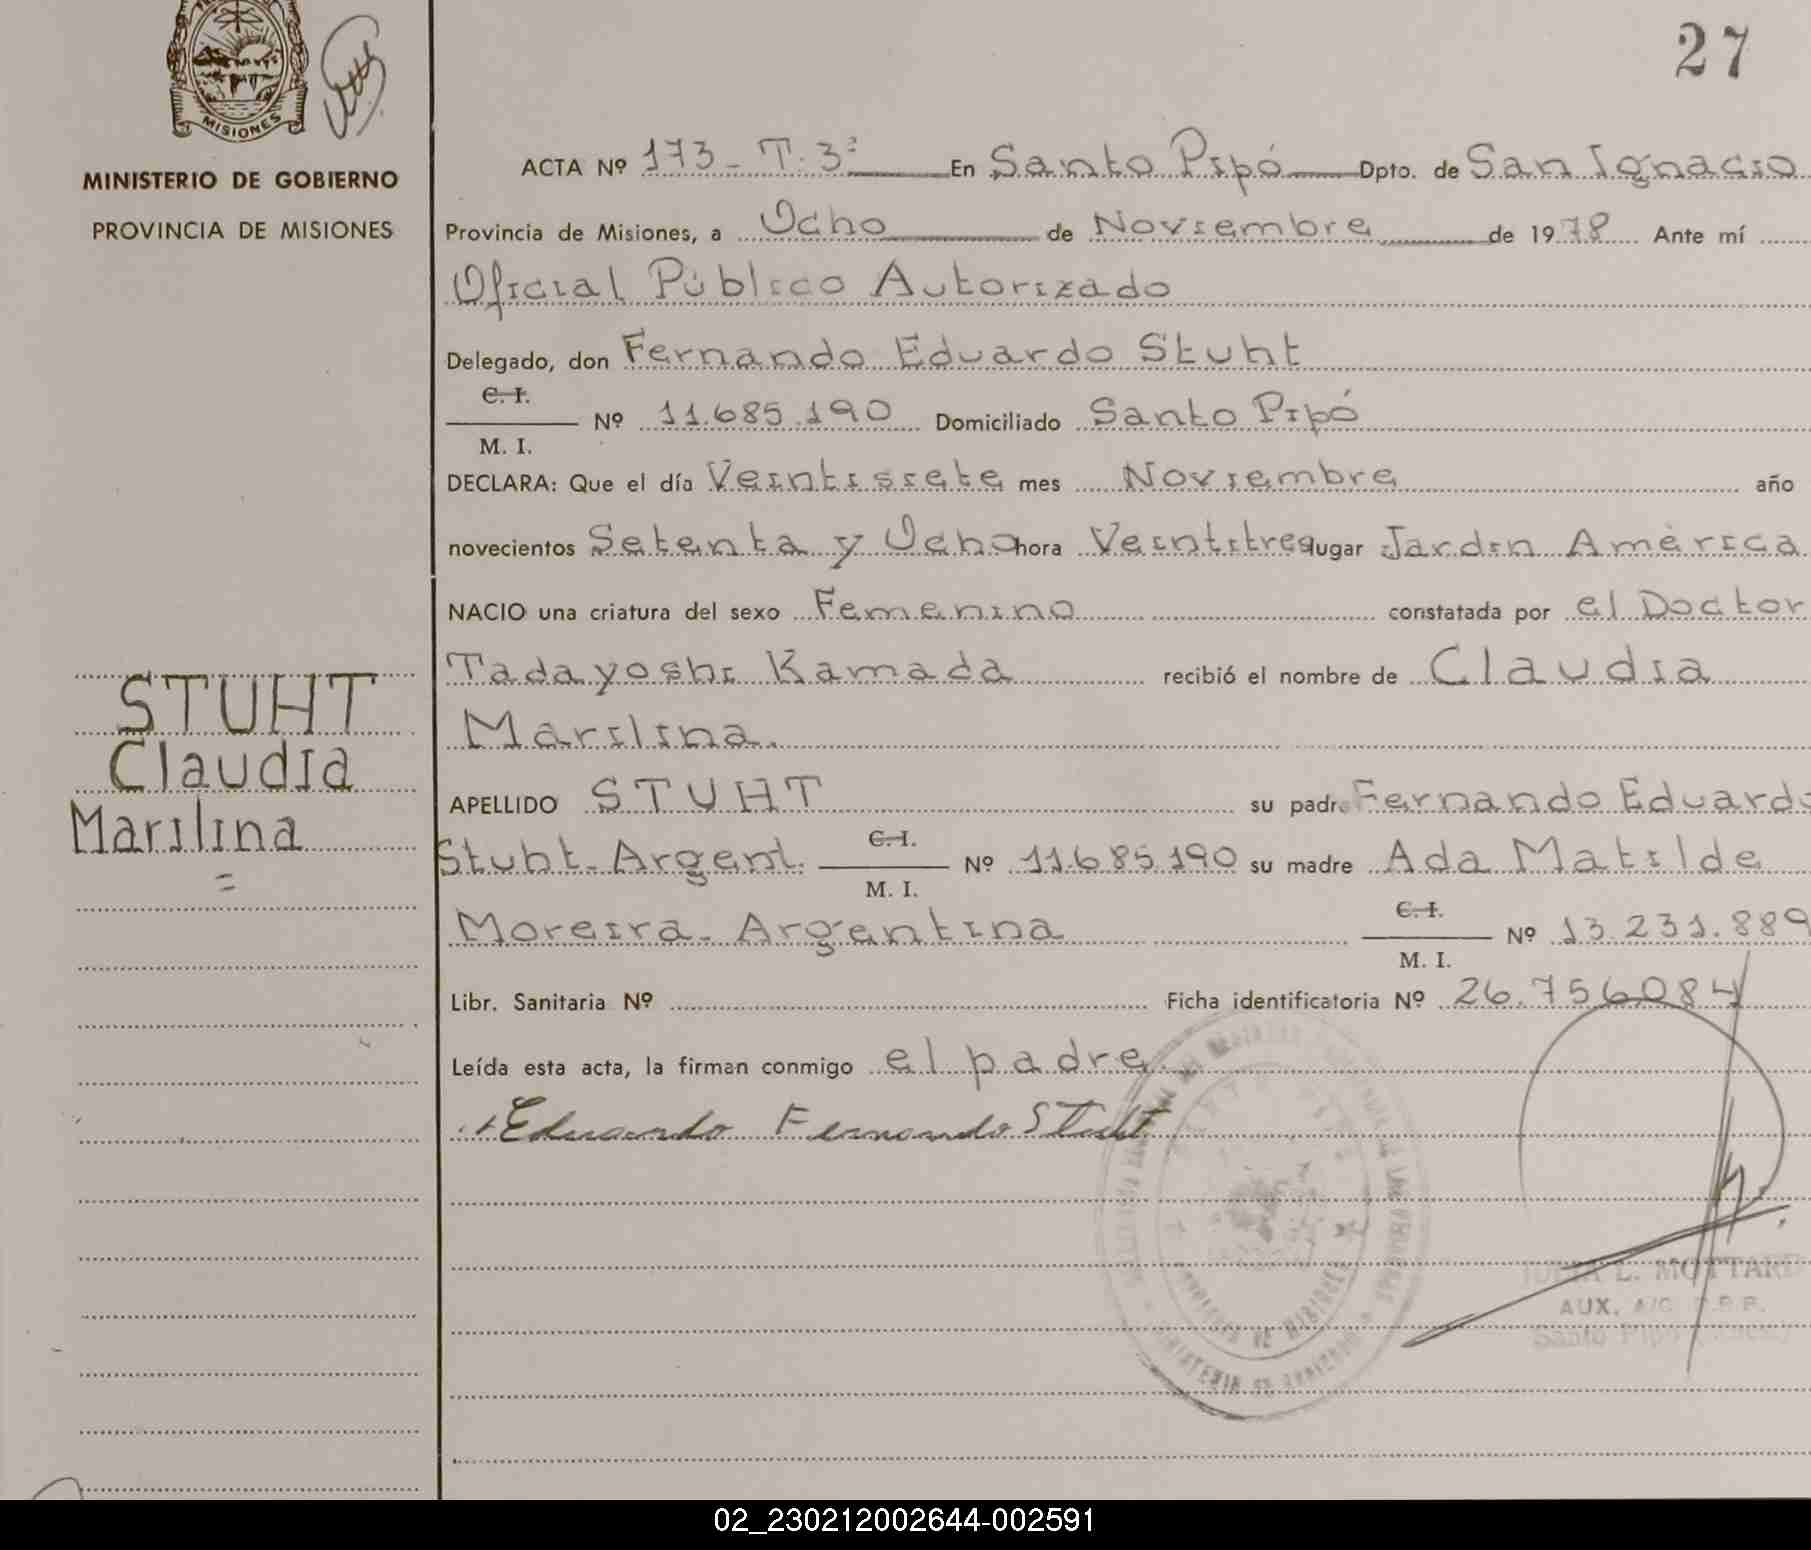 27
MISIONES
MINISTERIO DE GOBIERNO
PROVINCIA DE MISIONES
ACTA Nº 173 - T. 3º En Santo Pipó Dpto. de San Ignacio
Provincia de Misiones, a Ocho de Noviembre de 1978 Ante mí
Oficial Público Autorizado
Delegado, don Fernando Eduardo Stuht
C. I.
Nº 11.685.190 Domiciliado Santo Pipó
M. I.
DECLARA: Que el día Veintisiete mes Noviembre año
novecientos Setenta y Ocho hora Veintitres lugar Jardin Amèrica
NACIO una criatura del sexo Femenino constatada por el Doctor
Tadayoshi Kamada recibió el nombre de Claudia
Marilina.
APELLIDO STUHT su padre Fernando Eduardo
Stuht - Argent. C. I. Nº 11.685.190 su madre Ada Matilde
M. I.
Moreira - Argentina C. I. Nº 13.231.889
M. I.
Libr. Sanitaria Nº Ficha identificatoria Nº 26.756084
Leída esta acta, la firman conmigo el padre
Eduardo Fernando Stuht
STUHT
Claudia
Marilina
=
L. MOTTARD
AUX. A/C
Santo Pipó
02_230212002644-002591